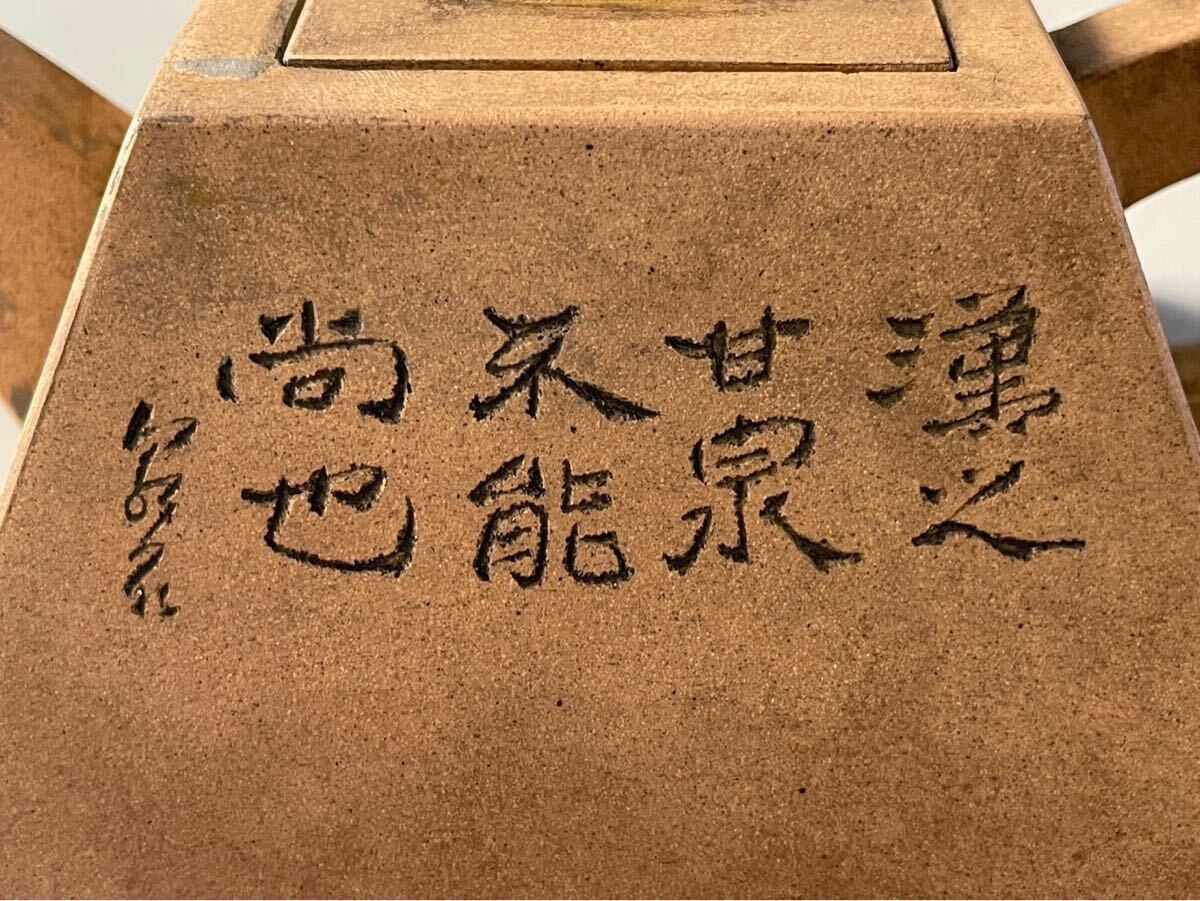 漢之
甘泉
不能
尚也